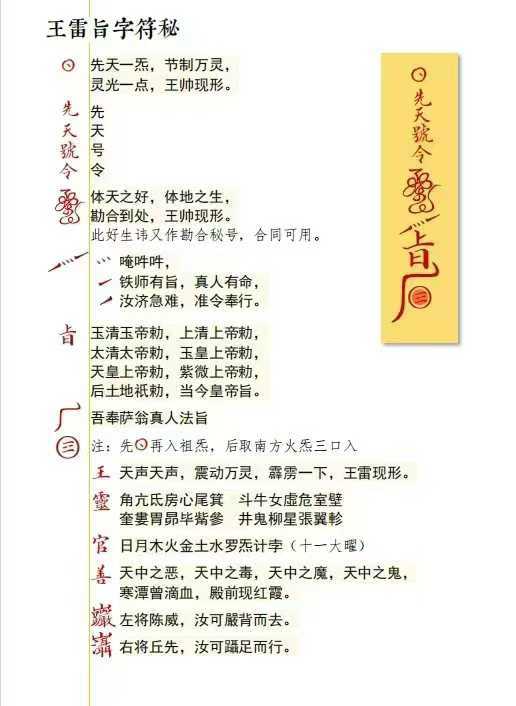 王雷旨字符秘
先天一炁，节制万灵，
灵光一点，王帅现形。
先 先
天 天
號 号
令 令
体天之好，体地之生，
勘合到处，王帅现形。
此好生讳又作勘合秘号，合同可用。
唵吽吽，
铁师有旨，真人有命，
汝济急难，准令奉行。
旨
玉清玉帝勅，上清上帝勅，
太清太帝勅，玉皇上帝勅，
天皇上帝勅，紫微上帝勅，
后土地祇勅，当今皇帝旨。
吾奉萨翁真人法旨
三
注：先再入祖炁，后取南方火炁三口入
王 天声天声，震动万灵，霹雳一下，王雷现形。
靈 角亢氐房心尾箕 斗牛女虚危室壁
奎婁胃昴毕觜參 井鬼柳星張翼軫
官 日月木火金土水罗炁计孛（十一大曜）
善 天中之恶，天中之毒，天中之魔，天中之鬼，
寒潭曾滴血，殿前现红霞。
左将陈威，汝可嚴背而去。
右将丘先，汝可躡足而行。
先
天
號
令
旨
三